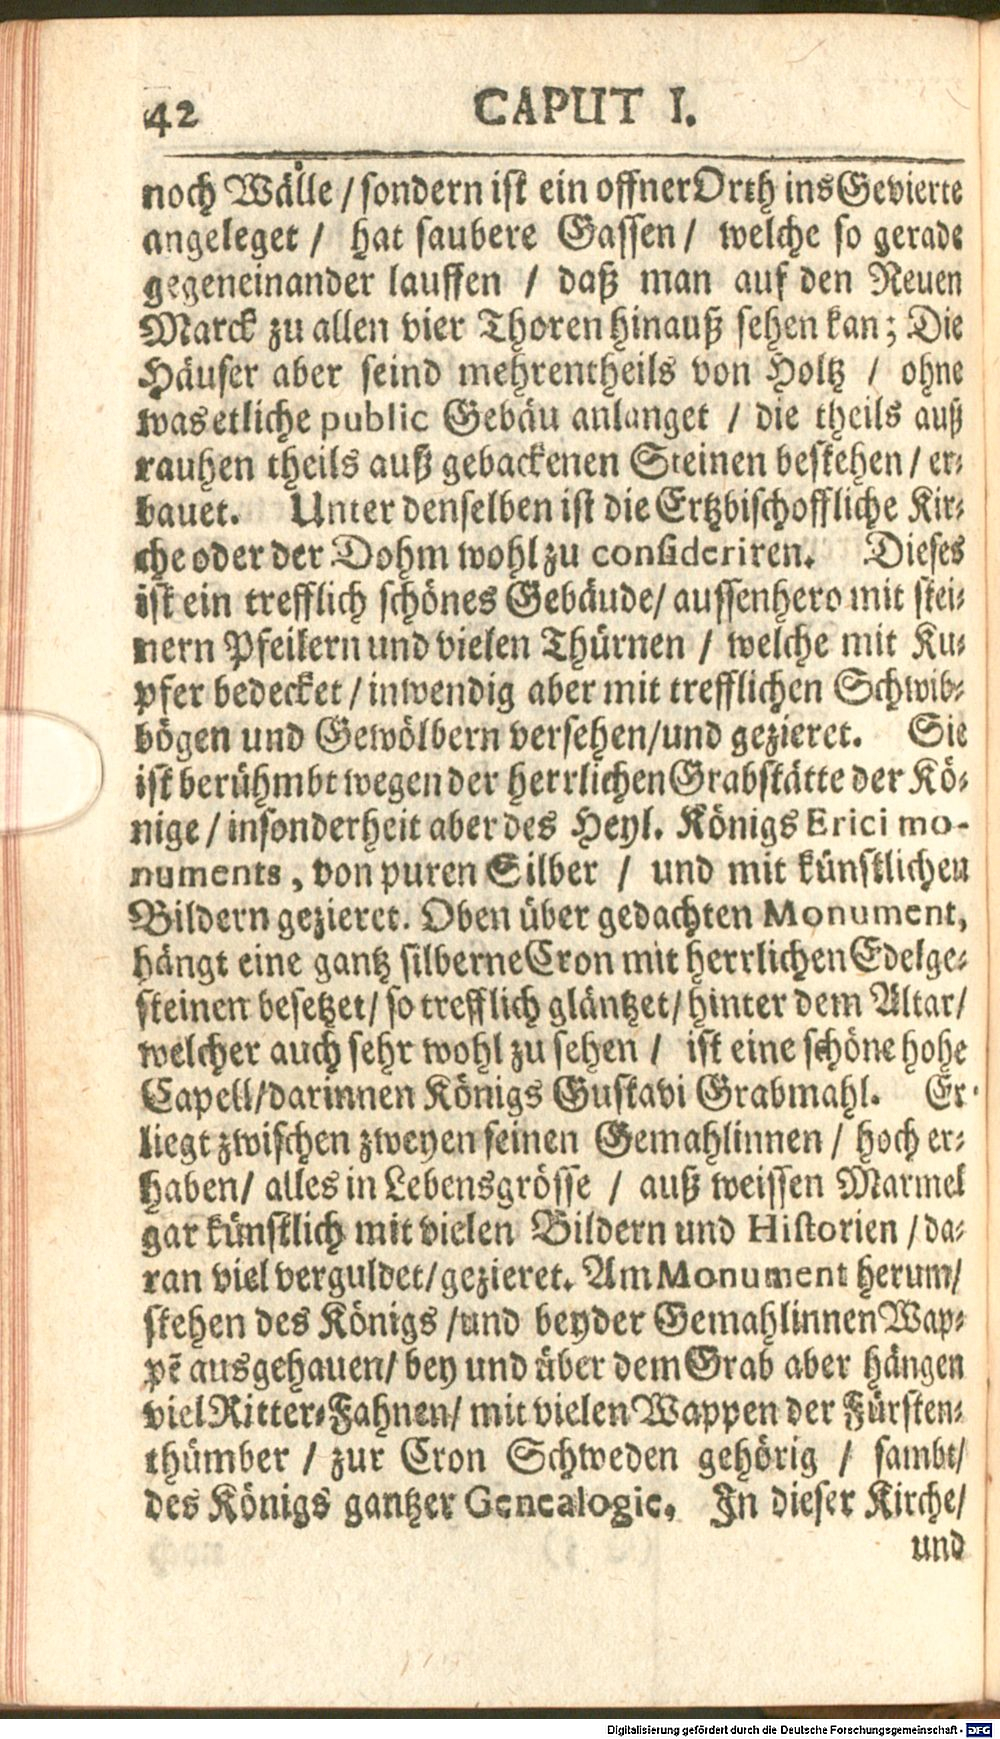 42 CAPUT I.
noch Wälle / sondern ist ein offner Orth ins Gevierte
angeleget / hat saubere Gassen / welche so gerade
gegeneinander lauffen / daß man auf den Neuen
Marck zu allen vier Thoren hinauß sehen kan; Die
Häuser aber seind mehrentheils von Holtz / ohne
was etliche public Gebäu anlanget / die theils auß
rauhen theils auß gebackenen Steinen bestehen / er-
bauet. Unter denselben ist die Ertzbischoffliche Kir-
che oder der Dohm wohl zu consideriren. Dieses
ist ein trefflich schönes Gebäude / aussenhero mit stei-
nern Pfeilern und vielen Thürnen / welche mit Ku-
pfer bedecket / inwendig aber mit trefflichen Schwib-
bögen und Gewölbern versehen / und gezieret. Sie
ist berühmbt wegen der herrlichen Grabstätte der Kö-
nige / insonderheit aber des Heyl. Königs Erici mo-
numents, von puren Silber / und mit künstlichen
Bildern gezieret. Oben über gedachten Monument,
hängt eine gantz silberne Cron mit herrlichen Edelge-
steinen besetzet / so trefflich gläntzet / hinter dem Altar /
welcher auch sehr wohl zu sehen / ist eine schöne hohe
Capell / darinnen Königs Gustavi Grabmahl. Er
liegt zwischen zweyen seinen Gemahlinnen / hoch er-
haben / alles in Lebensgrösse / auß weissen Marmel
gar künstlich mit vielen Bildern und Historien / da-
ran viel verguldet / gezieret. Am Monument herum /
stehen des Königs / und beyder Gemahlinnen Wap-
pẽ ausgehauen / bey und über dem Grab aber hängen
viel Ritter-Fahnen / mit vielen Wappen der Fürsten-
thümber / zur Cron Schweden gehörig / sambt /
des Königs gantzer Genealogie. In dieser Kirche /
und
Digitalisierung gefördert durch die Deutsche Forschungsgemeinschaft - DFG